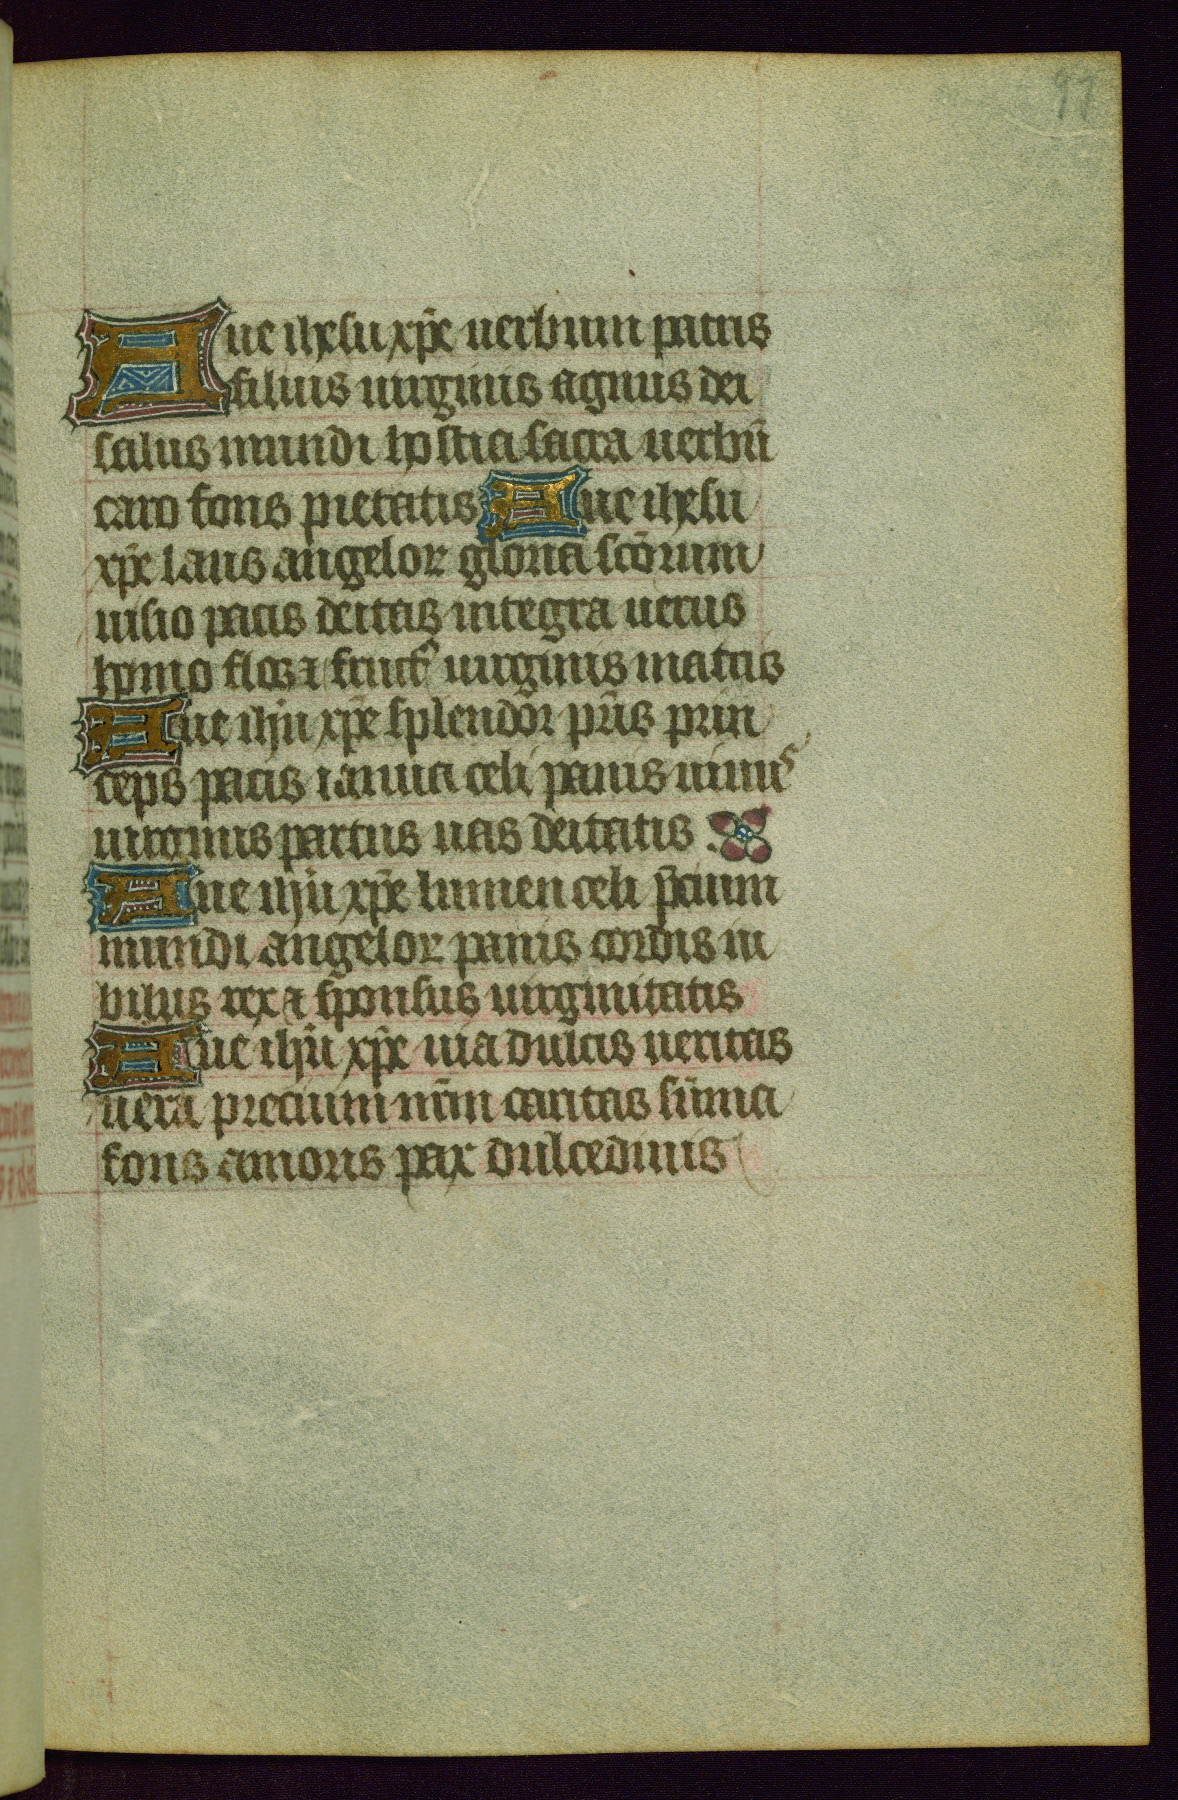 97
Aue ihesu xp̄e uerbum patris
filius uirginis agnus dei
salus mundi hostia sacra uerbū
caro fons pietatis Aue ihesu
xp̄e laus angelor gloria sc̄orum
uisio pacis deitas integra uerus
homo flos ⁊ fruct᾿ uirginis matris
Aue ihū xp̄e splendor pr̄is prin
ceps pacis ianua celi panis uiuus
uirginis partus uas deitatis
Aue ihū xp̄e lumen celi p̄cium
mundi angelor panis cordis iu
bilus rex ⁊ sponsus uirginitatis
Aue ihū xp̄e uia dulcis ueritas
uera precium nr̄m caritas sūma
fons amoris pax dulcedinis